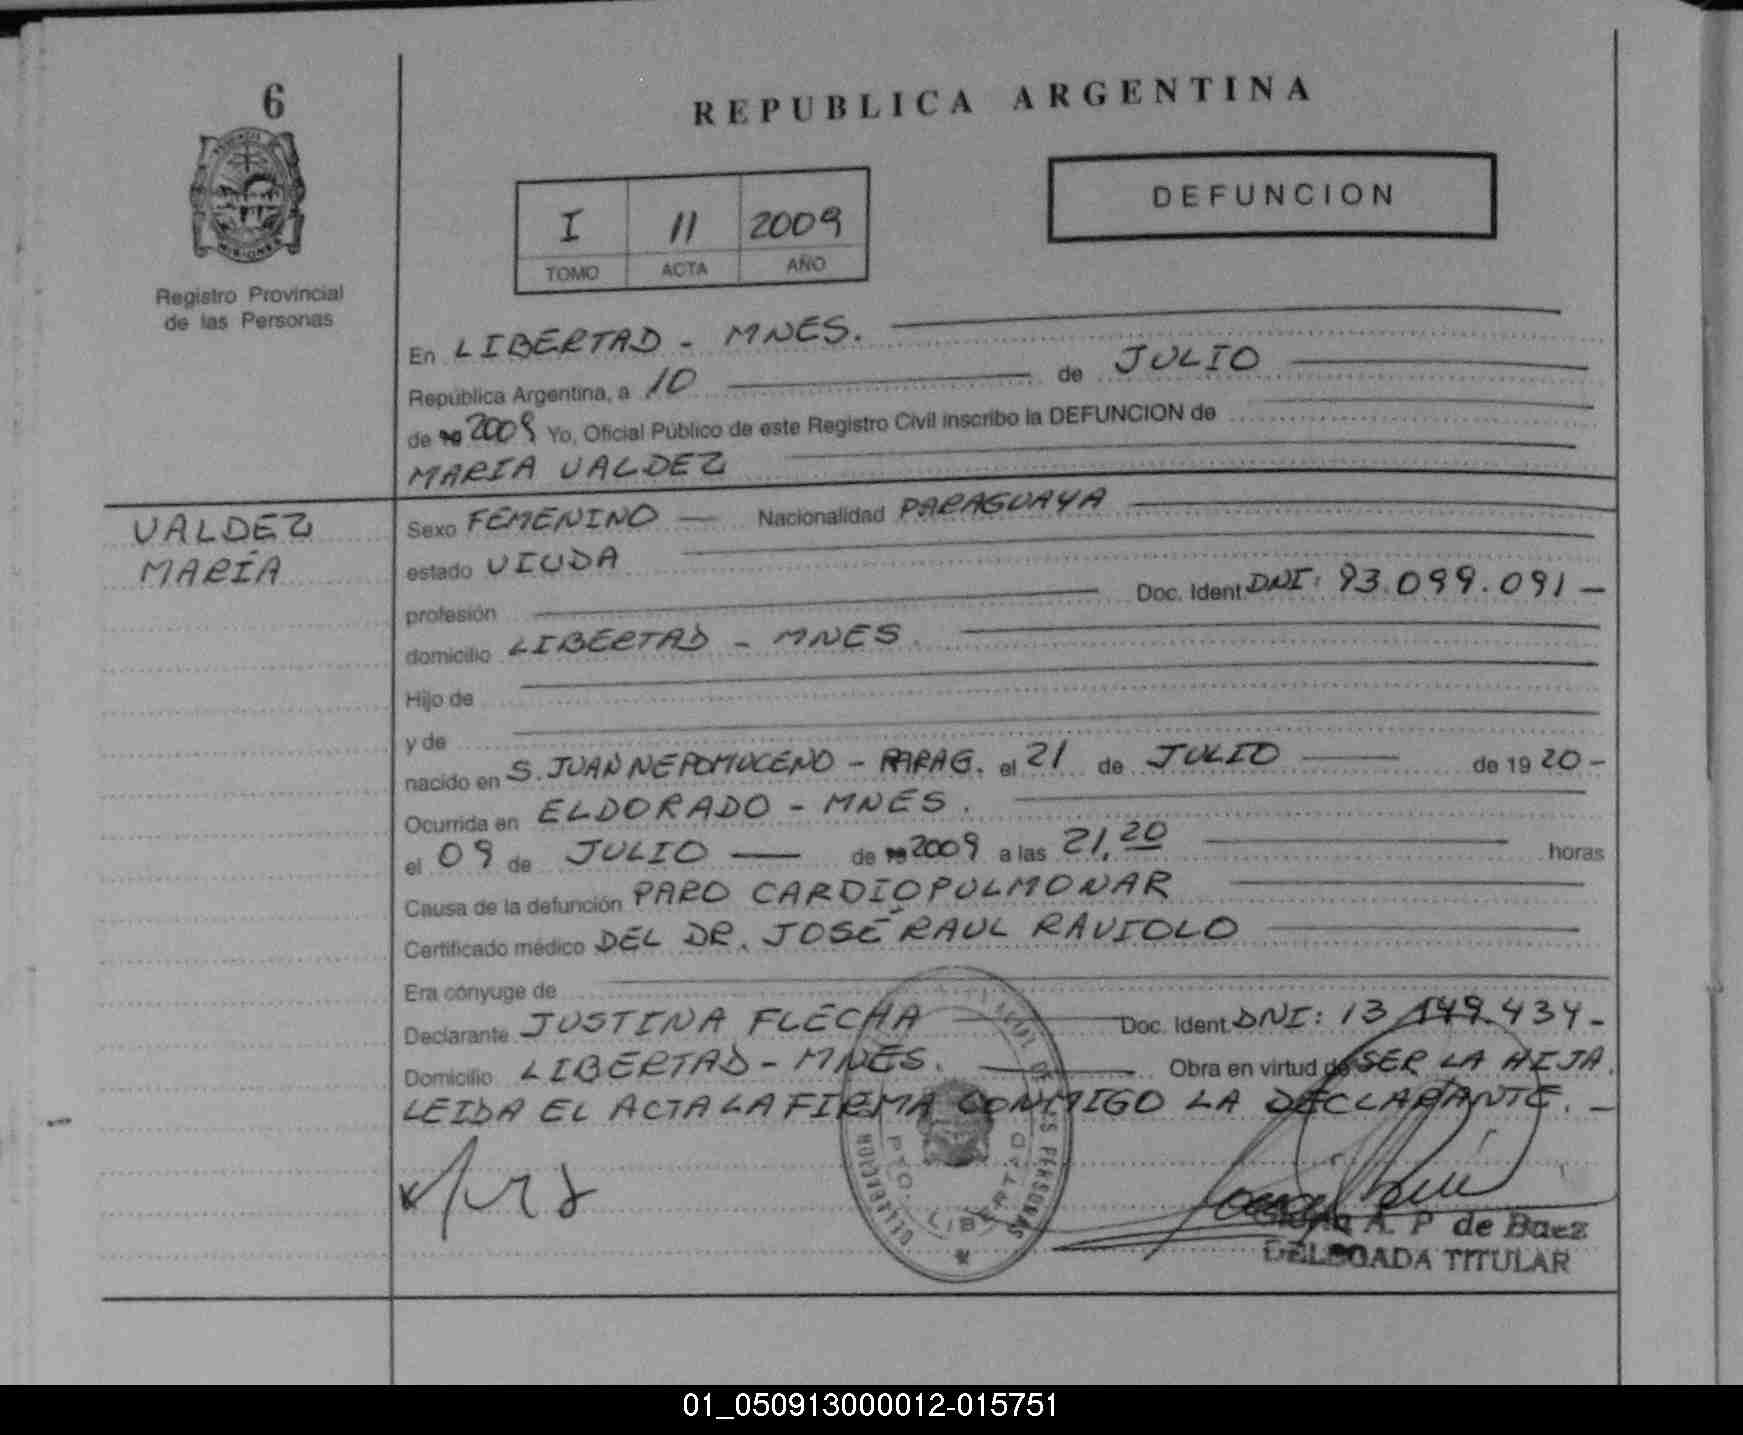 6
REPUBLICA ARGENTINA
DEFUNCION
I 11 2009
TOMO ACTA AÑO
Registro Provincial
de las Personas
En LIBERTAD - MNES.
República Argentina, a 10 de JULIO
de 19 2009 Yo, Oficial Público de este Registro Civil inscribo la DEFUNCION de
MARIA VALDEZ
VALDEZ
MARÍA
Sexo FEMENINO Nacionalidad PARAGUAYA
estado VIUDA
profesión Doc. Ident DNI: 93.099.091 -
domicilio LIBERTAD - MNES.
Hijo de
y de
nacido en S. JUAN NEPOMUCENO - PARAG. el 21 de JULIO de 19 20 -
Ocurrida en ELDORADO - MNES.
el 09 de JULIO de 19 2009 a las 21,20 horas
Causa de la defunción PARO CARDIOPULMONAR
Certificado médico DEL DR. JOSÉ RAUL RAVIOLO
Era cónyuge de
Declarante JUSTINA FLECHA Doc. Ident. DNI: 13.149.434 -
Domicilio LIBERTAD - MNES. Obra en virtud de SER LA HIJA.
LEIDA EL ACTA LA FIRMA CONMIGO LA DECLARANTE. -
DELEGACION DE LAS PERSONAS
PTO. LIBERTAD
A. P de Baez
DELEGADA TITULAR
01_050913000012-015751